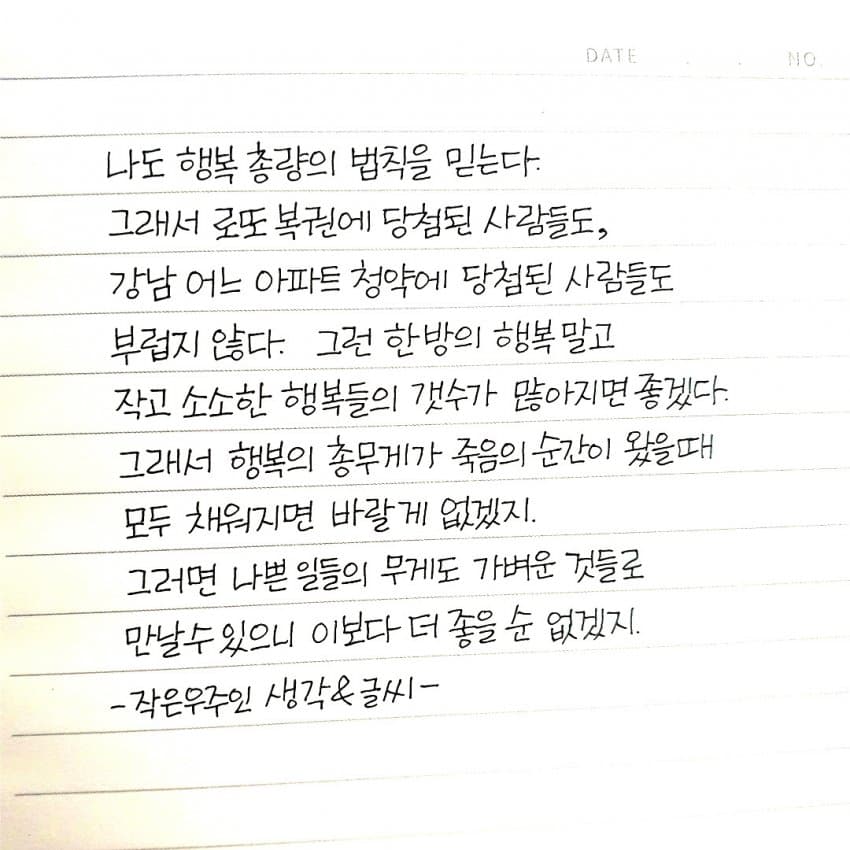 DATE . . NO.
나도 행복 총량의 법칙을 믿는다.
그래서 로또 복권에 당첨된 사람들도,
강남 어느 아파트 청약에 당첨된 사람들도
부럽지 않다. 그런 한방의 행복 말고
작고 소소한 행복들의 갯수가 많아지면 좋겠다.
그래서 행복의 총무게가 죽음의 순간이 왔을때
모두 채워지면 바랄게 없겠지.
그러면 나쁜 일들의 무게도 가벼운 것들로
만날수있으니 이보다 더 좋을 순 없겠지.
-작은우주인 생각&글씨-